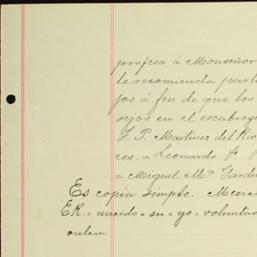 profesa á Monseñor
le recomienda parti
jos á fin de que los
sejos en el escabroso
J. P. Martinez del Rio
ces. = Leonardo F.
= Miguel Mª Gardu
Es copia simple. Mexic
ER. = nacido = su = yo = volunta
valen.